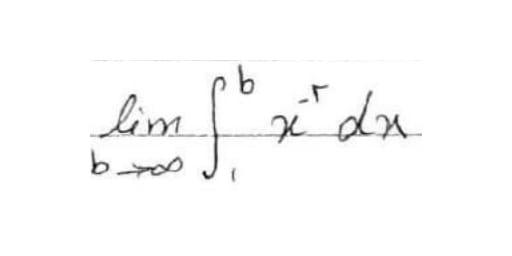 \lim_{b \to \infty} \int_{1}^{b} x^{-r} dx